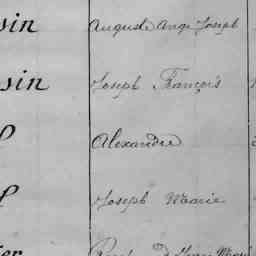 sin Auguste Ange Joseph
ssin Joseph François
l Alexandre
l Joseph Marie
ier